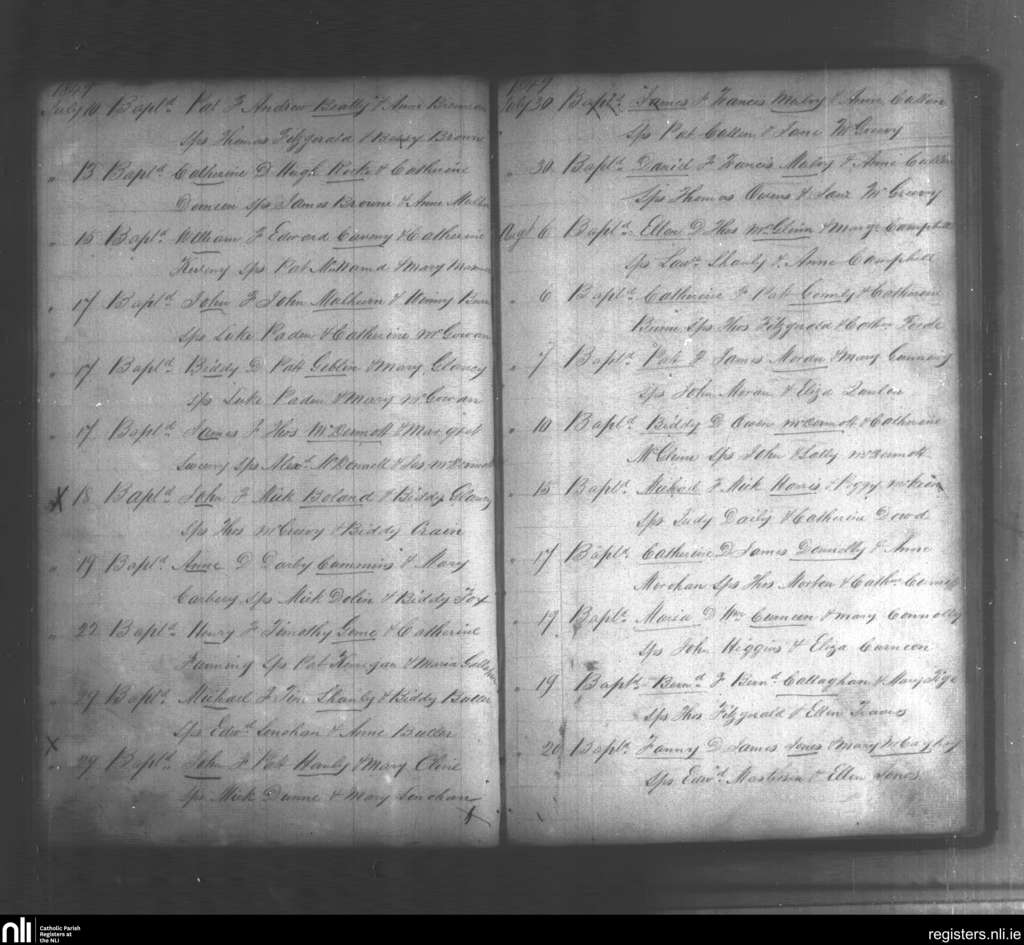 1849
July 10 Baptd Pat F Andrew Beatty & Anne Brennan
Sps Thomas Fitzgerald & Betsy Brown
" 13 Baptd Catherine D Hugh Rorke & Catherine
sps James Browne & Anne
" 15 Baptd William F Edward Canning & Catherine
sps Pat & Mary
" 17 Baptd John F John Mulhern & Winny
Sps Luke Paden & Catherine McGowan
" 17 Baptd Biddy D Patt Goblin & Mary Glancy
Sps Luke Paden & Mary McGowan
" 17 Baptd James F Thos McDermott & Margret
Sweeny sps Alexd McDonnell & Jas McDermott
X 18 Baptd John F Mick Boland & Biddy Glancy
Sps Thos McGreevy & Biddy Crain
" 19 Baptd Anne D Darby Cummins & Mary
Carbery Sps Mick Dolin & Biddy Fox
" 22 Baptd Henry F Timothy & Catherine
Fanning Sps Pat & Maria
" 29 Baptd Michael F Tim Shanly & Biddy Butler
Sps Edwd Lenehan & Anne Butler
X
" 29 Baptd John F Pat Hanly & Mary Cline
Sps Mick Dunne & Mary Lenehan
1849
July 30 Baptd James F Francis Mulvy & Anne Cullen
Sps Pat Cullen & Jane McGreevy
" 30 Baptd David F Francis Mulvy & Anne Cullen
Sps Thomas Owens & Jane McGreevy
Augt 6 Baptd Ellen D Thos McGlinn & Mary Campbell
Sps Lawce Shanly & Anne Campbell
" 6 Baptd Catherine F Pat & Catherine
Sps Thos Fitzgerald & Cathn Forde
" 7 Baptd Pat F James Moran & Mary Cunnery
Sps John Moran & Eliza
" 10 Baptd Biddy D Owen McDermott & Catherine
McGlinne Sps John & Sally McDermott
" 15 Baptd Michael F Mick & Peggy
Sps Judy Daily & Catherine Dowd
" 17 Baptd Catherine D James Donnolly & Anne
Sps Thos Morton & Cathn
" 19 Baptd Maria D Wm Curneen & Mary Connolly
Sps John Higgins & Eliza Curneen
" 19 Baptd Bernd F Bernd Callaghan & Mary
Sps Thos Fitzgerald & Ellen
" 20 Baptd Fanny D James Jones & Mary
Sps Edwd Masterson & Ellen Jones
nli Catholic Parish
Registers at
the NLI
registers.nli.ie